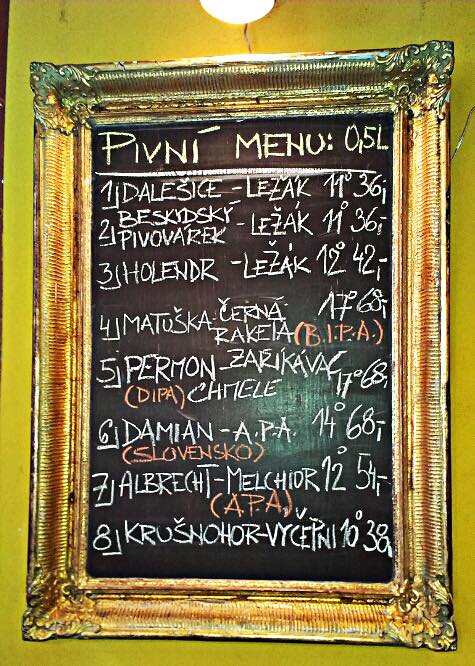 PIVNÍ MENU: 0,5L
1) DALEŠICE - LEŽÁK 11° 36,-
2) BESKYDSKÝ PIVOVÁREK - LEŽÁK 11° 36,-
3) HOLENDR - LEŽÁK 12° 42,-
4) MATUŠKA - ČERNÁ RAKETA (B.I.P.A.) 17° 68,-
5) PERMON - ZAŘÍKÁVAČ CHMELE (DIPA) 17° 68,-
6) DAMIAN - A.P.A. 14° 68,-
(SLOVENSKO)
7) ALBRECHT - MELCHIOR 12° 54,-
(APA)
8) KRUŠNOHOR - VÝČEPNÍ 10° 38,-